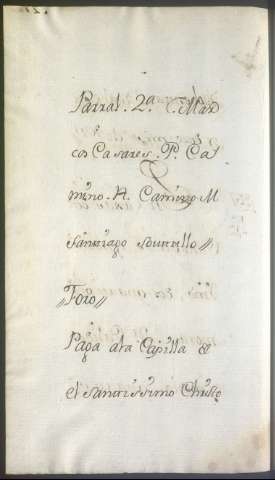 Parral. 2.ª C. Mar
cos Casares. P. Ca
mino. N. Camino M
Santiago
"Foro"
Paga ala Capilla de
el santissimo Christo